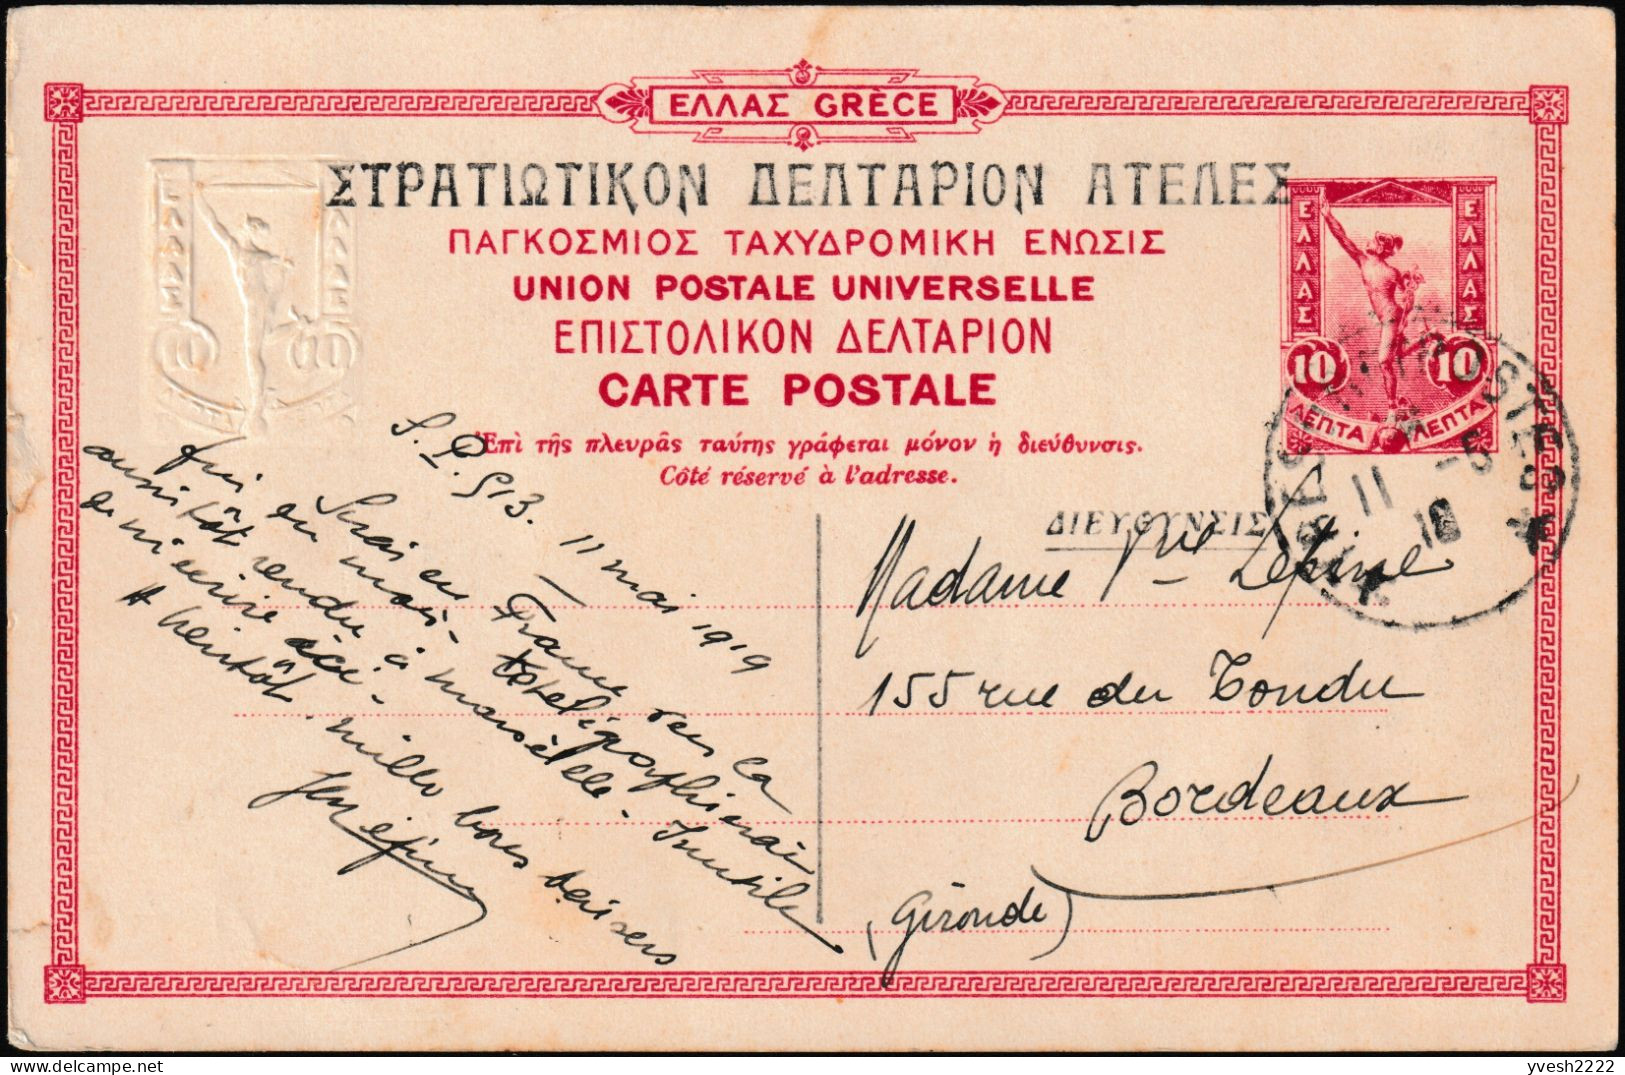 ΕΛΛΑΣ GRÈCE
ΣΤΡΑΤΙΩΤΙΚΟΝ ΔΕΛΤΑΡΙΟΝ ΑΤΕΛΕΣ
ΠΑΓΚΟΣΜΙΟΣ ΤΑΧΥΔΡΟΜΙΚΗ ΕΝΩΣΙΣ
UNION POSTALE UNIVERSELLE
ΕΠΙΣΤΟΛΙΚΟΝ ΔΕΛΤΑΡΙΟΝ
CARTE POSTALE
Ἐπὶ τῆς πλευρᾶς ταύτης γράφεται μόνον ἡ διεύθυνσις.
Côté réservé à l'adresse.
ΕΛΛΑΣ
ΕΛΛΑΣ
10 10
ΛΕΠΤΑ ΛΕΠΤΑ
ΕΛΛΑΣ
ΕΛΛΑΣ
10 10
POSTES
11 -5
S.P. 513. 11 mai 1919
Serai en France vers la
fin du mois - télégraphierai
aussitôt rendu à Marseille. Inutile
de m'écrire ici -
A bientôt. mille bons baisers
ΔΙΕΥΘΥΝΣΙΣ
Madame Lépine
155 rue du Tondu
Bordeaux
(Gironde)
yvesh2222